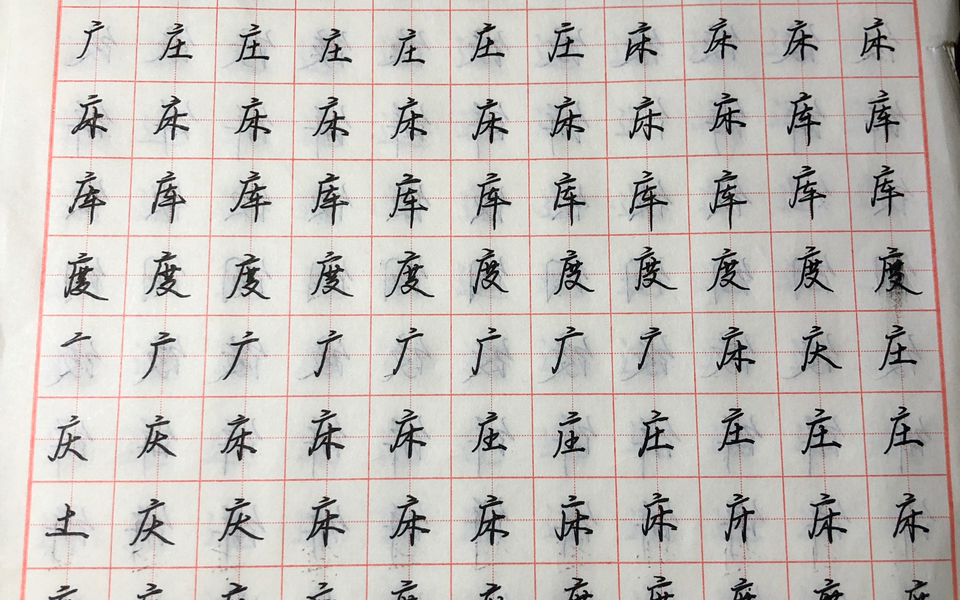 广庄庄庄庄庄庄床床床床
床床床床床床床床床库库
库库库库库库库库库库库
度度度度度度度度度度度
广广广广广广广床庆庄
庆庆床床床庄庄庄庄庄庄
土庆庆床床床床床床床